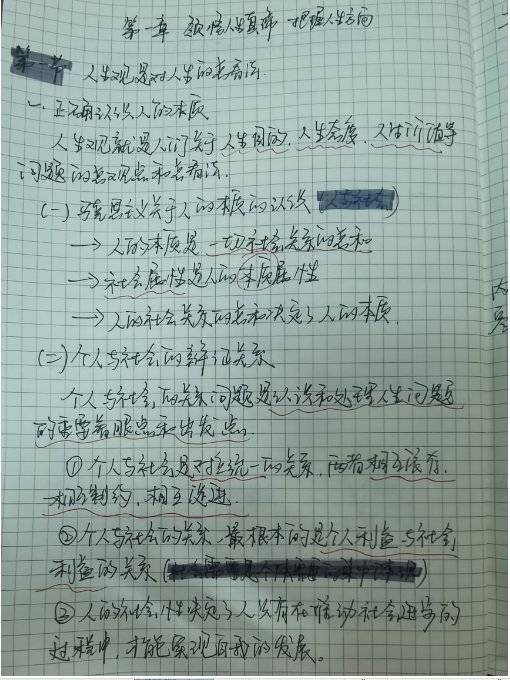 第一章 领悟人生真谛 把握人生方向
第一节 人生观是对人生的总看法
一、正确认识人的本质
人生观就是人们关于人生目的、人生态度、人生价值等
问题的总观点和总看法.
(一) 马克思主义关于人的本质的认识 (人与社会)
→ 人的本质是一切社会关系的总和
→ 社会属性是人的本质属性
→ 人的社会关系的总和决定了人的本质.
(二) 个人与社会的辩证关系
个人与社会的关系问题是认识和处理人生问题
的重要着眼点和出发点.
① 个人与社会是对立统一的关系, 两者相互依存.
相互制约, 相互促进.
② 个人与社会的关系, 最根本的是个人利益与社会
利益的关系 (
③ 人的社会性决定了人只有在推动社会进步的
过程中, 才能实现自我的发展。